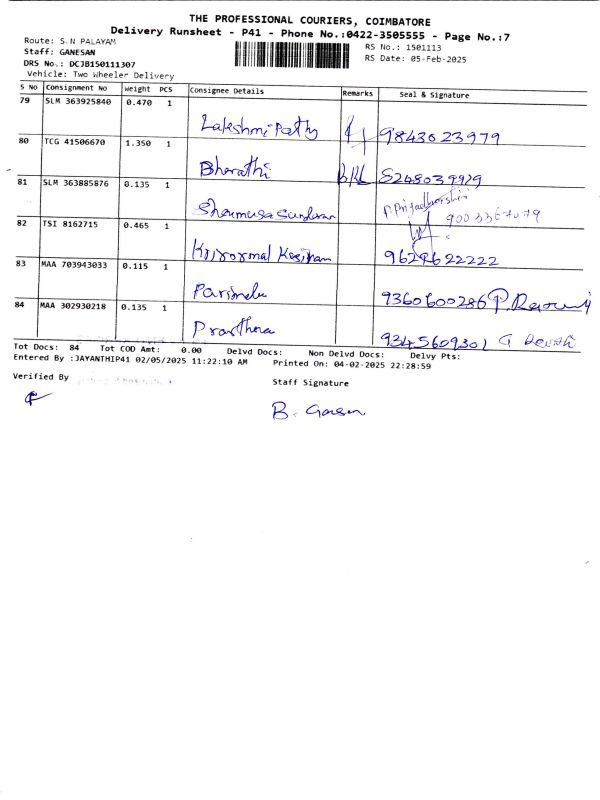 THE PROFESSIONAL COURIERS, COIMBATORE
Delivery Runsheet - P41 - Phone No.:0422-3505555 - Page No.:7
Route: S.N PALAYAM
RS No.: 1501113
Staff: GANESAN
RS Date: 05-Feb-2025
DRS No.: DCJB150111307
Vehicle: Two Wheeler Delivery
S No Consignment No Weight PCS Consignee Details Remarks Seal & Signature
79 SLM 363925840 0.470 1
Lakshmi Pathy 9843023979
80 TCG 41506670 1.350 1
Bharathi 8248039929
81 SLM 363885876 0.135 1
P. Priyadharshini
9003367079
82 TSI 8162715 0.465 1
9629622222
83 MAA 703943033 0.115 1
9360600286
84 MAA 302930218 0.135 1
Prarthana
9345609301 G Devaki
Tot Docs: 84 Tot COD Amt: 0.00 Delvd Docs: Non Delvd Docs: Delvy Pts:
Entered By :JAYANTHIP41 02/05/2025 11:22:10 AM Printed On: 04-02-2025 22:28:59
Verified By
Staff Signature
B. Ganesan